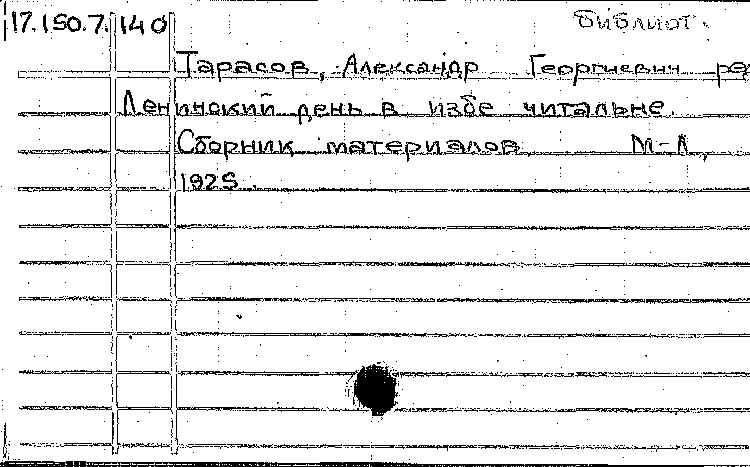 17.150.7.140 библиот.
Тарасов, Александр Георгиевич ре
Ленинский день в избе читальне.
Сборник материалов М-Л,
1925.